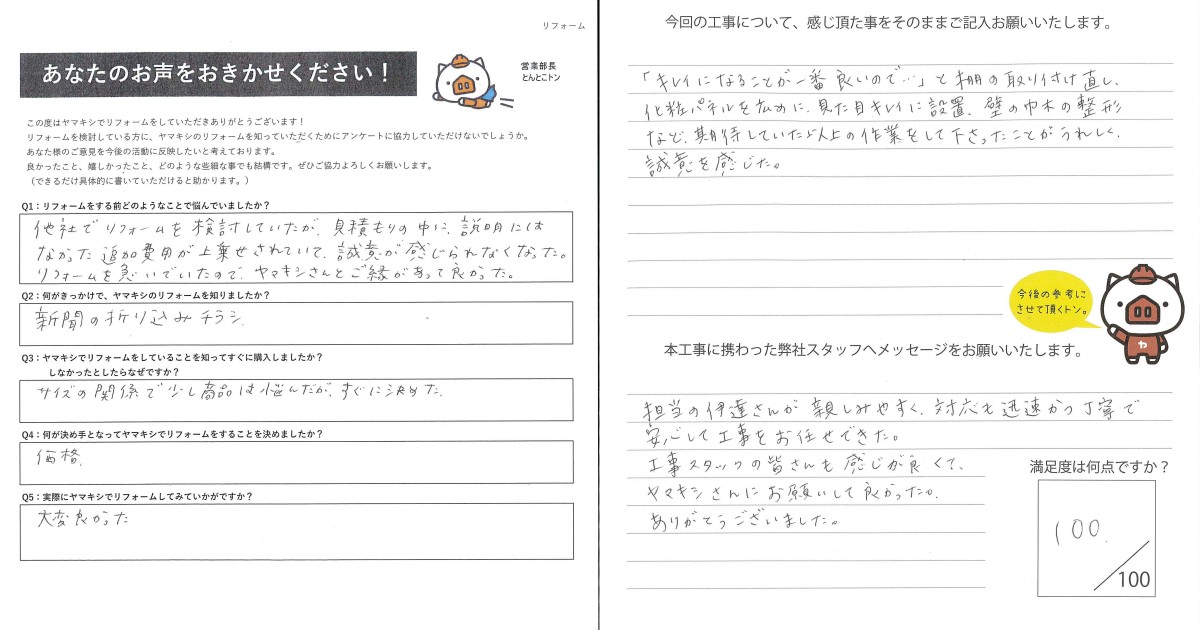 リフォーム
あなたのお声をおきかせください！
営業部長
とんとこトン
この度はヤマキシでリフォームをしていただきありがとうございます！
リフォームを検討している方に、ヤマキシのリフォームを知っていただくためにアンケートに協力していただけないでしょうか。
あなた様のご意見を今後の活動に反映したいと考えております。
良かったこと、嬉しかったこと、どのような些細な事でも結構です。ぜひご協力よろしくお願いします。
（できるだけ具体的に書いていただけると助かります。）
Q1：リフォームをする前どのようなことで悩んでいましたか？
他社でリフォームを検討していたが、見積もりの中に、説明には
なかった追加費用が上乗せされていて、誠意が感じられなくなった。
リフォームを急いでいたので、ヤマキシさんとご縁があって良かった。
Q2：何がきっかけで、ヤマキシのリフォームを知りましたか？
新聞の折り込みチラシ.
Q3：ヤマキシでリフォームをしていることを知ってすぐに購入しましたか？
しなかったとしたらなぜですか？
サイズの関係で少し商品は悩んだが、すぐに決めた.
Q4：何が決め手となってヤマキシでリフォームをすることを決めましたか？
価格.
Q5：実際にヤマキシでリフォームしてみていかがですか？
大変良かった
今回の工事について、感じ頂た事をそのままご記入お願いいたします。
「キレイになることが一番良いので…」と棚の取り付け直し、
化粧パネルを広めに、見た目キレイに設置、壁の巾木の整形
など、期待していた以上の作業をして下さったことがうれしく、
誠意を感じた。
今後の参考に
させて頂くトン。
ヤ
本工事に携わった弊社スタッフへメッセージをお願いいたします。
担当の伊達さんが親しみやすく、対応も迅速かつ丁寧で
安心して工事をお任せできた。
工事スタッフの皆さんも感じが良くて、
ヤマキシさんにお願いして良かった。
ありがとうございました。
満足度は何点ですか？
100.
/100